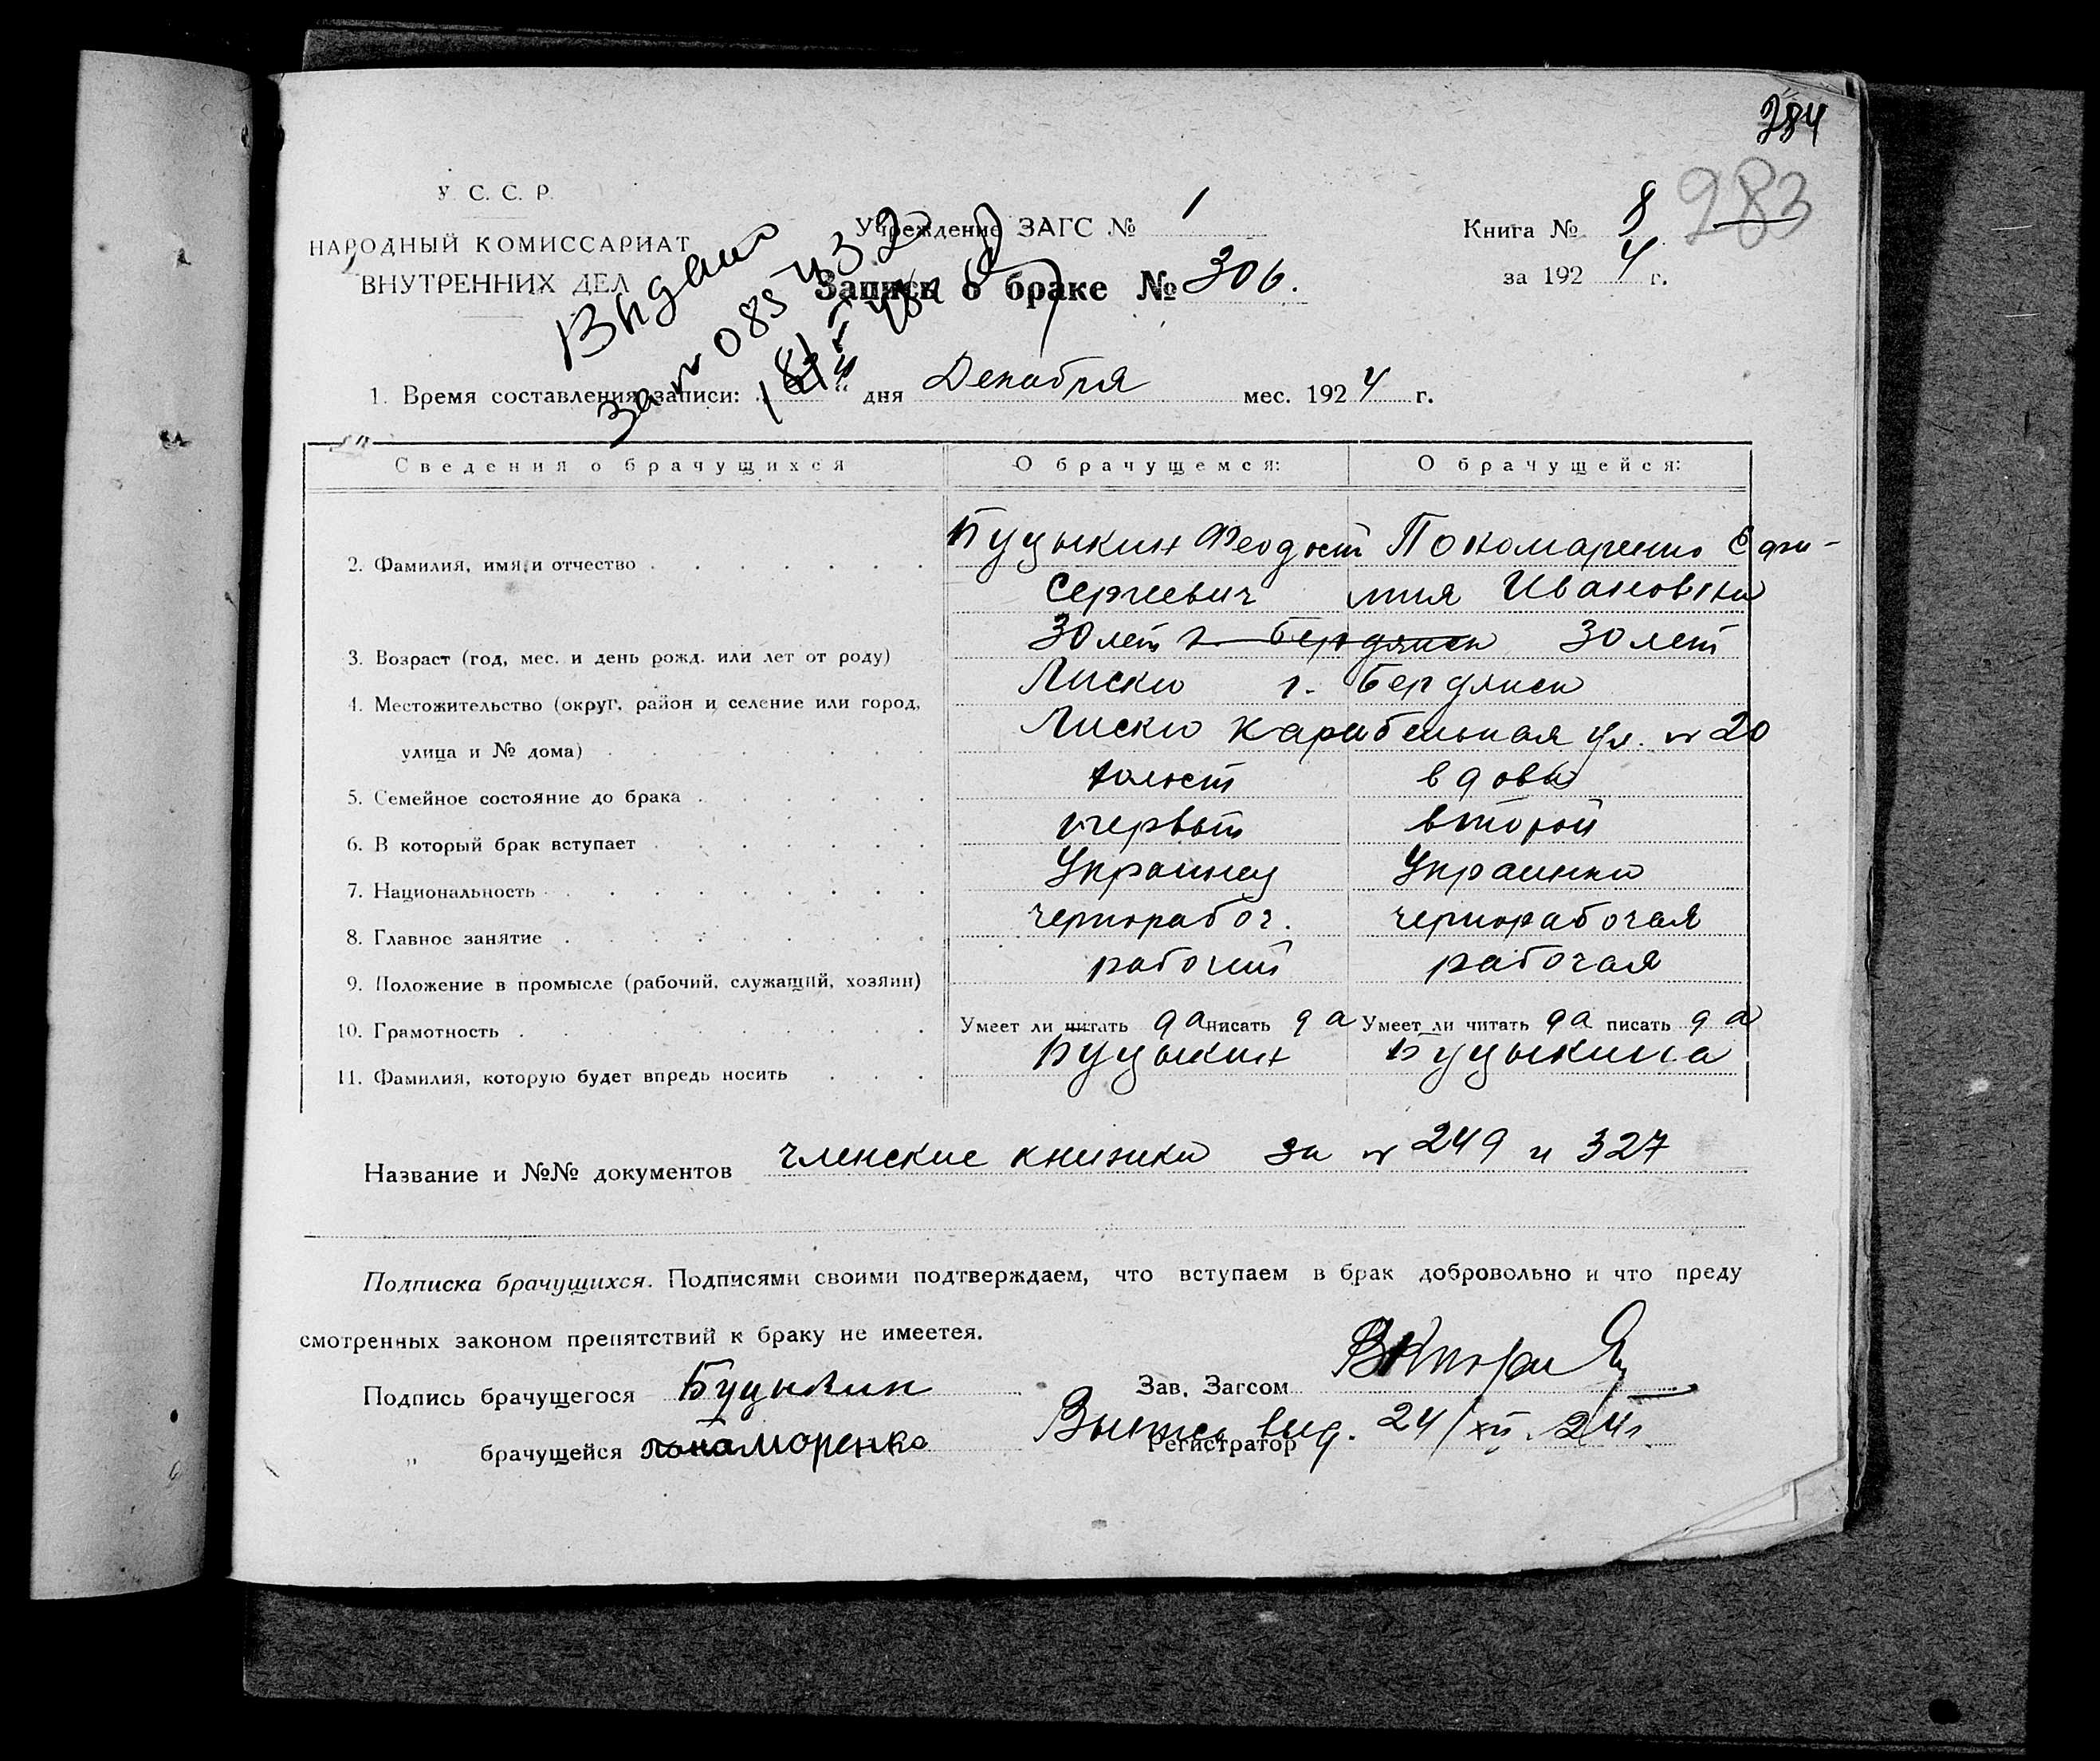 284
283
У. С. С. Р.
НАРОДНЫЙ КОМИССАРИАТ
ВНУТРЕННИХ ДЕЛ
Учреждение ЗАГС № 1
Книга № 8
за 1924 г.
Запись о браке № 306.
Видано
за № 085432
1. Время составления записи: дня Декабря мес. 1924 г.
Сведения о брачущихся О брачущемся: О брачущейся:
2. Фамилия, имя и отчество Буцыкин Феодосий Пономаренко Ефи-
Сергеевич мия Ивановна
3. Возраст (год, мес. и день рожд. или лет от роду) 30 лет г. Бердянск 30 лет
4. Местожительство (округ, район и селение или город, Лиски г. Бердянск
улица и № дома) Лиски Карабельная ул. № 20
5. Семейное состояние до брака холост вдова
6. В который брак вступает первый второй
7. Национальность Украинец Украинка
8. Главное занятие чернорабоч. чернорабочая
9. Положение в промысле (рабочий, служащий, хозяин) рабочий рабочая
10. Грамотность Умеет ли читать да писать да Умеет ли читать да писать да
11. Фамилия, которую будет впредь носить Буцыкин Буцыкина
Название и №№ документов членские книжки за № 249 и 327
Подписка брачущихся. Подписями своими подтверждаем, что вступаем в брак добровольно и что преду
смотренных законом препятствий к браку не имеетея.
Подпись брачущегося Буцыкин Зав. Загсом
" брачущейся понаморенко Регистратор
Выпись выд. 24/XII 24 г